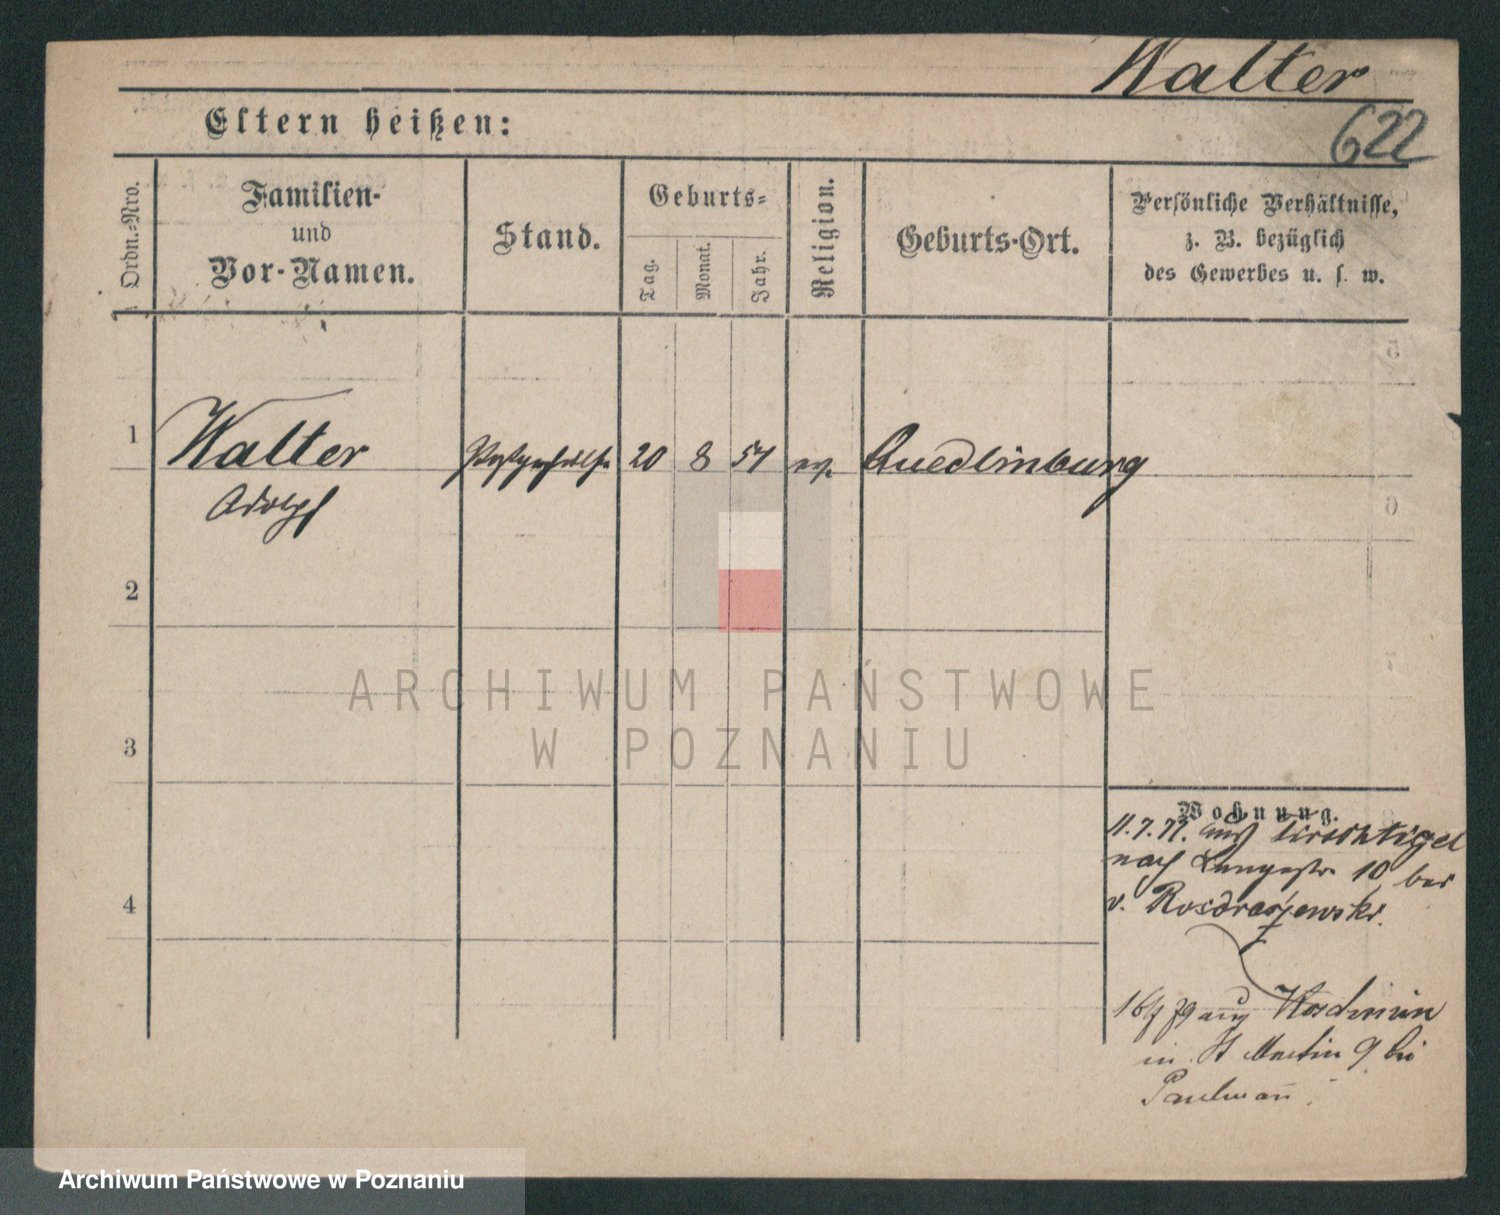 Walter
622
Eltern heißen:
Ordn.-Nro.
Familien-
und
Vor-Namen.
Stand.
Geburts-
Tag.
Monat.
Jahr.
Religion.
Geburts-Ort.
Persönliche Verhältnisse,
z. B. bezüglich
des Gewerbes u. s. w.
1
Walter
Postgehülfe
20
8
57
ev.
Quedlinburg
Adolph
2
3
4
Wohnung.
11.7.77. aus Tirschtigel
nach Langestr 10 bei
v. Rozdrazewski
aus
in St Martin 9 bei
Paulmann
ARCHIWUM PAŃSTWOWE
W POZNANIU
Archiwum Państwowe w Poznaniu